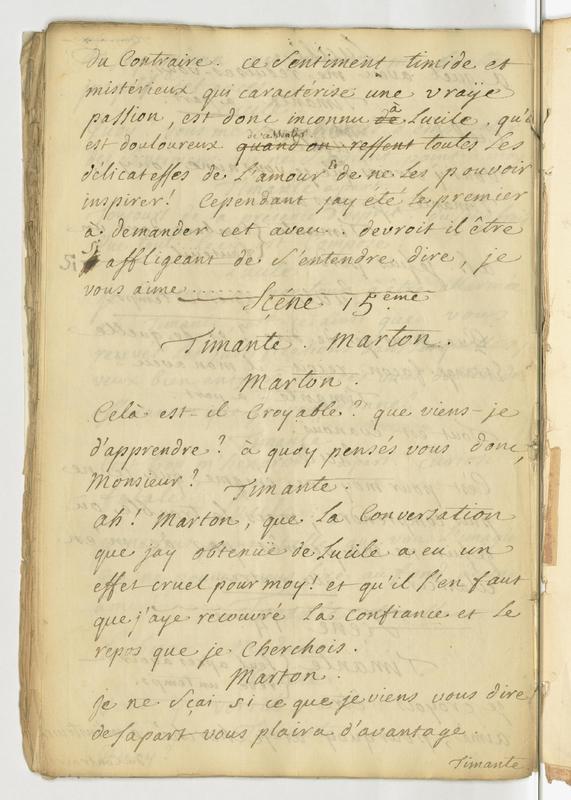 du Contraire. ce Sentiment timide et
mistérieux qui caractérise une vraÿe
passion, est donc inconnu de à Lucile, qu'il
est douloureux quand on ressent toutes Les
délicatesses de L'amour de ne Les pouvoir
inspirer! Cependant jay été Le premier
à demander cet aveu... devroit il être
si affligeant de s'entendre dire, je
vous aime........
Scéne 15eme
Timante. Marton.
Marton.
Celà est-il Croyable? que viens-je
d'apprendre? à quoy pensés vous donc,
Monsieur?
Timante.
ah! Marton, que La Conversation
que jay obtenuë de Lucile a eu un
effet cruel pour moy! et qu'il s'en faut
que j'aye recouvré La Confiance et Le
repos que je Cherchois.
Marton.
Je ne Sçai si ce que je viens vous dire
de sa part vous plaira d'avantage
Timante